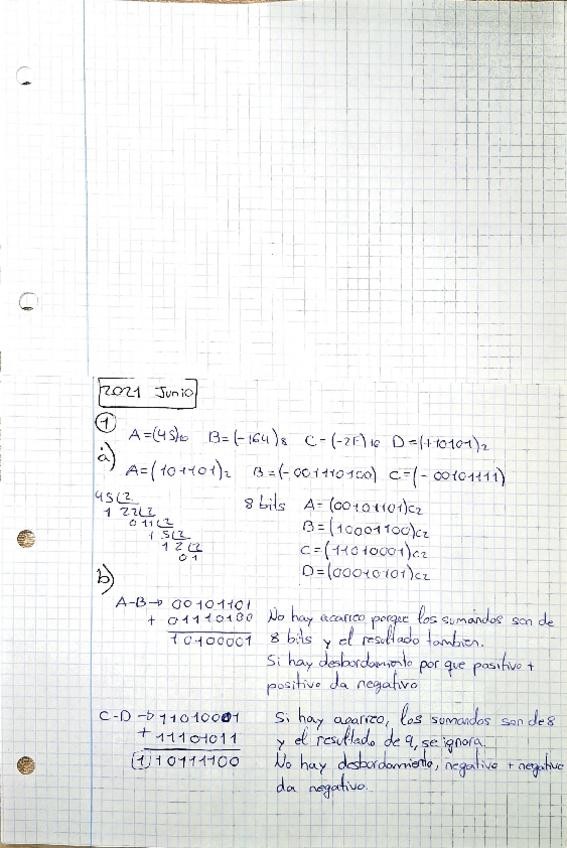 2021 Junio
1
A=(45)10 B=(-164)8 C=(-2F)16 D=(+10101)2
a) A=(101101)2 B=(-001110100) C=(-00101111)
45 L2
1 22 L2
0 11 L2
1 5 L2
1 2 L2
0 1
8 bits A=(00101101)C2
B=(10001100)C2
C=(11010001)C2
D=(00010101)C2
b)
A-B→ 00101101
+ 01110100
10100001
No hay acarreo porque los sumandos son de
8 bits y el resultado tambien.
Si hay desbordamiento por que positivo +
positivo da negativo
C-D → 11010001
+ 11101011
(1)10111100
Si hay acarreo, los sumandos son de 8
y el resultado de 9, se ignora.
No hay desbordamiento, negativo + negativo
da negativo.